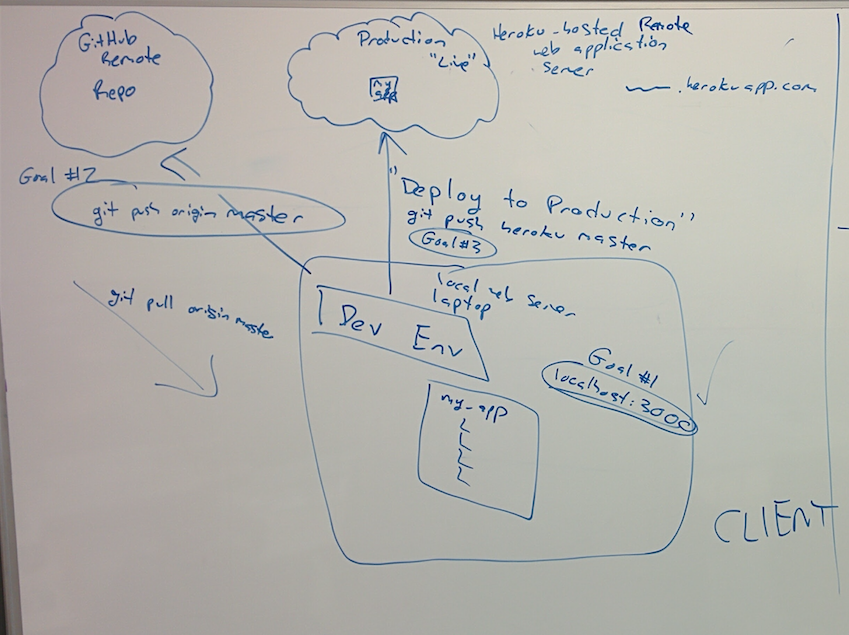 GitHub
Remote
Repo
Production
"Live"
my
app
Heroku-hosted Remote
web application
server
.herokuapp.com
Goal #2
git push origin master
"Deploy to Production"
git push heroku master
Goal #3
git pull origin maste
local web server
laptop
Dev Env
Goal #1
localhost:3000
my_app
CLIENT